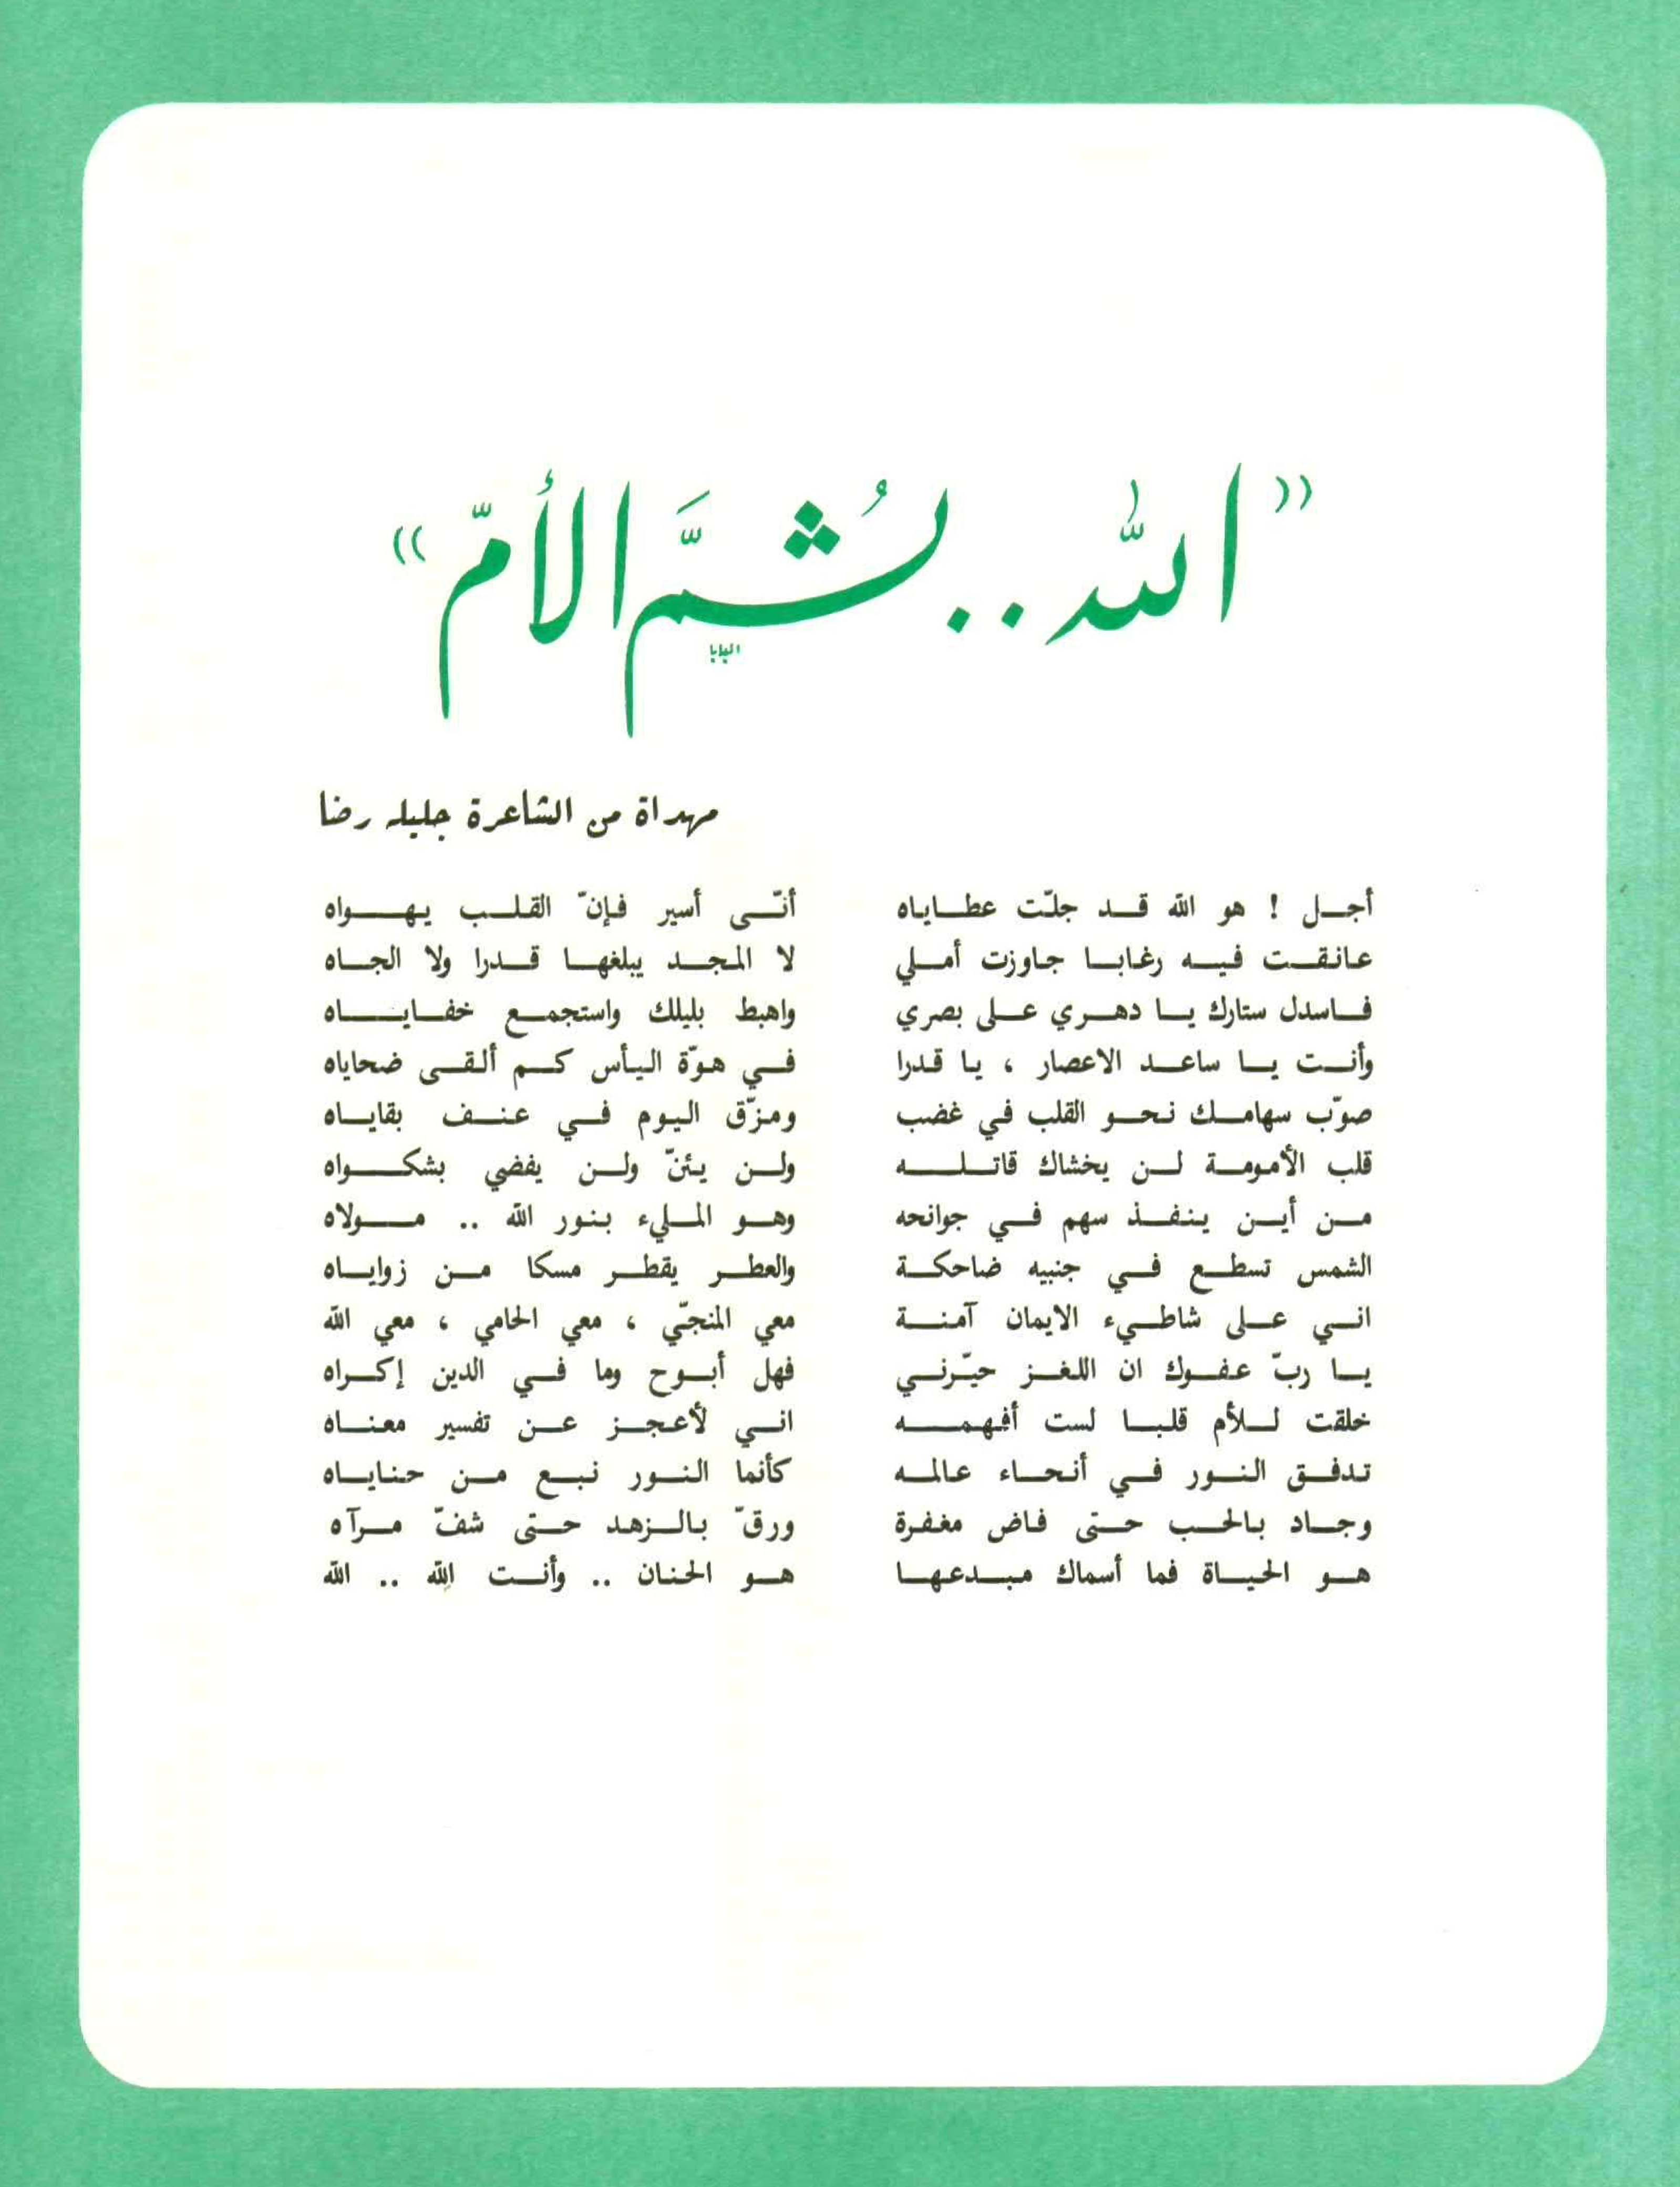 « الله .. ثُمَّ الأمّ »
البابا
مهداة من الشاعرة جليله رضا
أجل ! هو الله قد جلّت عطاياه أنّى أسير فإنّ القلب يهواه
عانقت فيه رغابا جاوزت أملي لا المجد يبلغها قدرا ولا الجاه
فاسدل ستارك يا دهري على بصري واهبط بليلك واستجمع خفاياه
وأنت يا ساعد الاعصار ، يا قدرا في هوّة اليأس كم ألقى ضحاياه
صوّب سهامك نحو القلب في غضب ومزّق اليوم في عنف بقاياه
قلب الأمومة لن يخشاك قاتله ولن يئنّ ولن يفضي بشكواه
من أين ينفذ سهم في جوانحه وهو المليء بنور الله .. مولاه
الشمس تسطع في جنبيه ضاحكة والعطر يقطر مسكا من زواياه
اني على شاطيء الايمان آمنة معي المنجّي ، معي الحامي ، معي الله
يا ربّ عفوك ان اللغز حيّرني فهل أبوح وما في الدين إكراه
خلقت للأم قلبا لست أفهمه اني لأعجز عن تفسير معناه
تدفق النور في أنحاء عالمه كأنما النور نبع من حناياه
وجاد بالحب حتى فاض مغفرة ورقّ بالزهد حتى شفّ مرآه
هو الحياة فما أسماك مبدعها هو الحنان .. وأنت الله .. الله